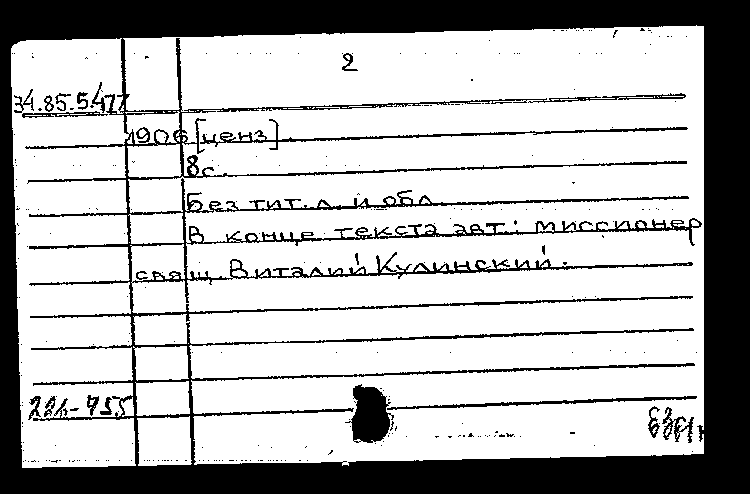 2
34.85.5477
1906 [ценз]
8с.
Без тит. л. и обл.
В конце текста авт.: миссионер
свящ. Виталий Кулинский.